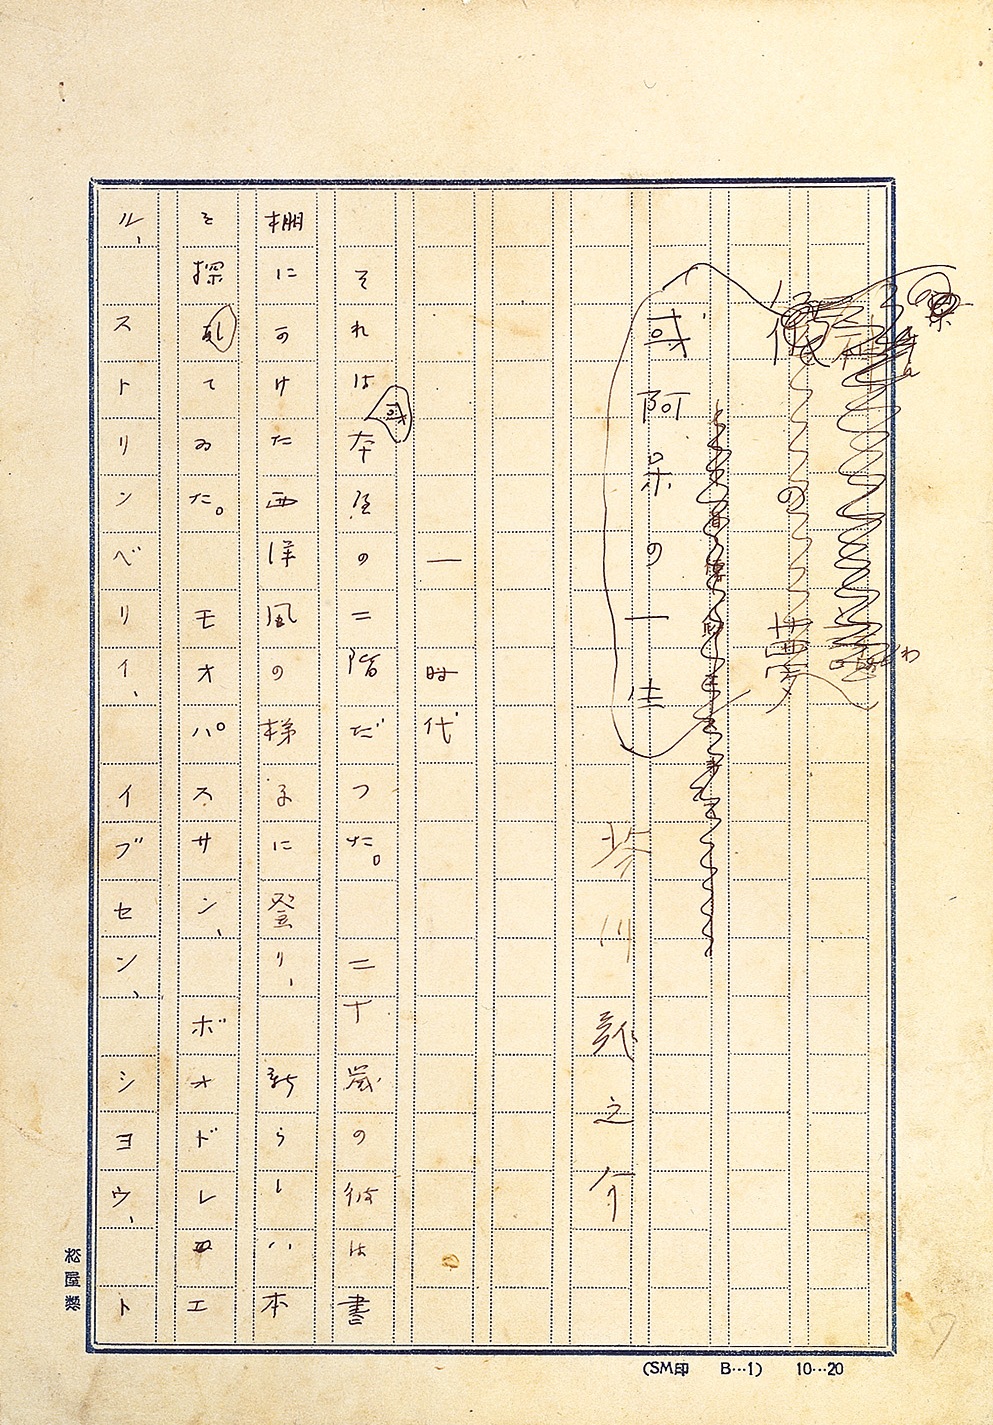 彼の夢
或阿呆の一生
芥川龍之介
一 時代
それは或本屋の二階だつた。二十歳の彼は書
棚にかけた西洋風の梯子に登り、新らしい本
を探してゐた。モオパスサン、ボオドレエ
ル、ストリンベリイ、イブセン、シヨウ、ト
松屋製
(SM印 B…1) 10…20